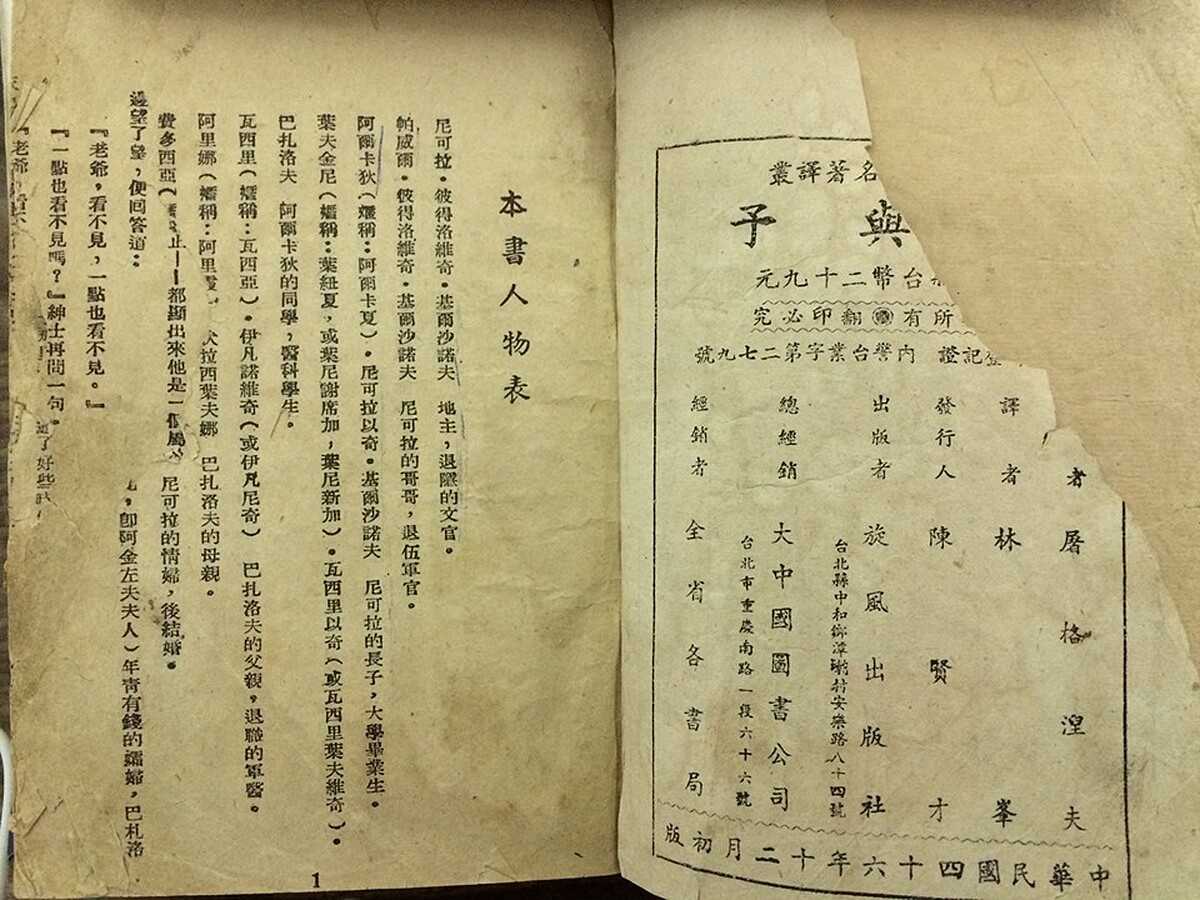 名著譯叢
與子
台幣二十九元
所有翻印必究
登記證 內警台業字第二七九號
者屠格涅夫
譯者林峯
發行人陳賢才
出版者旋風出版社
台北縣中和鄉潭墘村安樂路八十四號
總經銷大中國圖書公司
台北市重慶南路一段六十六號
經銷者全省各書局
中華民國四十六年十二月初版
本書人物表
尼可拉·彼得洛維奇·基爾沙諾夫 地主，退隱的文官。
帕威爾·彼得洛維奇·基爾沙諾夫 尼可拉的哥哥，退伍軍官。
阿爾卡狄（嬭稱：阿爾卡夏）·尼可拉以奇·基爾沙諾夫 尼可拉的長子，大學畢業生。
葉夫金尼（嬭稱：葉紐夏，或葉尼謝席加，葉尼新加）·瓦西里以奇（或瓦西里葉夫維奇）·
巴扎洛夫 阿爾卡狄的同學，醫科學生。
瓦西里（嬭稱：瓦西亞）·伊凡諾維奇（或伊凡尼奇） 巴扎洛夫的父親，退職的軍醫。
阿里娜（嬭稱：阿里 伏拉西葉夫娜 巴扎洛夫的母親。
費多西亞（ 止——都顯出來他是一個屬於 尼可拉的情婦，後結婚。
邊望了望，便回答道： ，卽阿金左夫夫人）年靑有錢的孀婦，巴札洛
『老爺，看不見，一點也看不見。』
『一點也看不見嗎？』紳士再問一句。
過了好些時
『老爺，看不
1